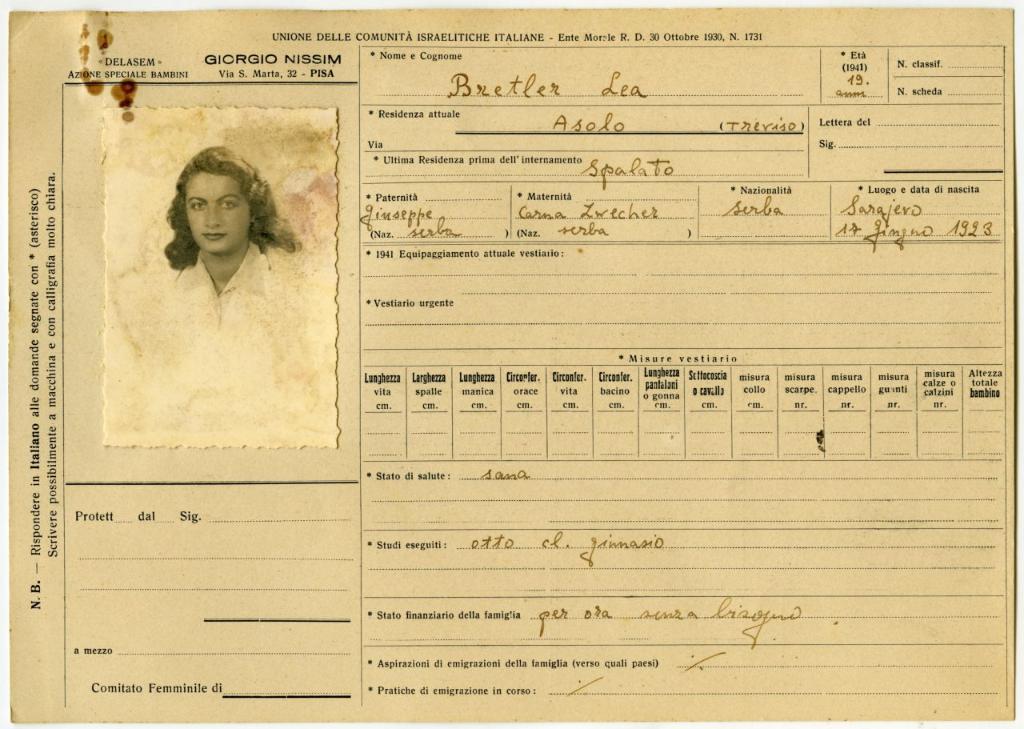 UNIONE DELLE COMUNITÀ ISRAELITICHE ITALIANE - Ente Morale R. D. 30 Ottobre 1930, N. 1731
«DELASEM»
AZIONE SPECIALE BAMBINI
GIORGIO NISSIM
Via S. Marta, 32 - PISA
N. B. — Rispondere in Italiano alle domande segnate con * (asterisco)
Scrivere possibilmente a macchina e con calligrafia molto chiara.
Protett dal Sig.
a mezzo
Comitato Femminile di
* Nome e Cognome
Bretler Lea
* Età
(1941)
19.
anni
N. classif.
N. scheda
* Residenza attuale
Asolo (Treviso)
Via
Lettera del
Sig.
* Ultima Residenza prima dell'internamento
Spalato
* Paternità
Giuseppe
(Naz. serba )
* Maternità
Carna Zwecher
(Naz. serba )
* Nazionalità
serba
* Luogo e data di nascita
Sarajevo
17 Giugno 1923
* 1941 Equipaggiamento attuale vestiario:
* Vestiario urgente
* Misure vestiario
Lunghezza vita cm. Larghezza spalle cm. Lunghezza manica cm. Circonfer. orace cm. Circonfer. vita cm. Circonfer. bacino cm. Lunghezza pantaloni o gonna cm. Sottocoscia o cavallo cm. misura collo cm. misura scarpe. nr. misura cappello nr. misura guanti nr. misura calze o calzini nr. Altezza totale bambino
* Stato di salute: sana
* Studi eseguiti: otto cl. ginnasio
* Stato finanziario della famiglia per ora senza bisogno
* Aspirazioni di emigrazioni della famiglia (verso quali paesi) /.
* Pratiche di emigrazione in corso: /